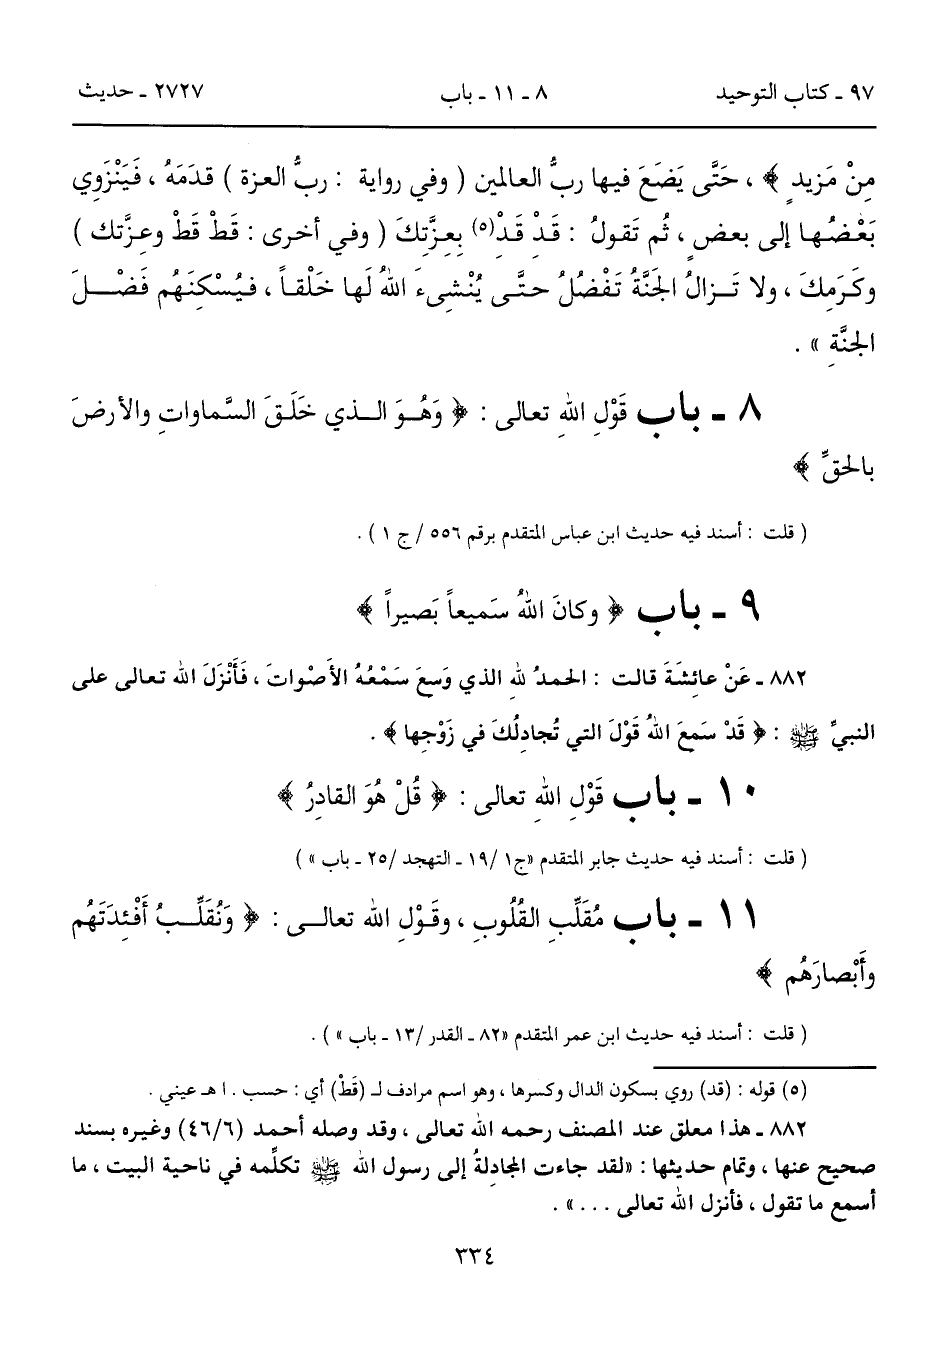 ٩٧ ـ كتاب التوحيد ٨ ـ ١١ ـ باب ٢٧٢٧ ـ حديث
مِنْ مَزيدٍ ﴾ ، حَتَّى يَضَعَ فيها ربُّ العالمين ( وفي رواية : ربُّ العزة ) قدَمَهُ ، فَيَنْزَوِي
بَعْضُها إلى بعضٍ ، ثُم تَقولُ : قَدْ قَدْ(٥) بِعِزَّتِكَ ( وفي أخرى : قَطْ قَطْ وعزَّتك )
وكَرَمِكَ ، ولا تَـزالُ الجَنَّةُ تَفْضُلُ حتَّـى يُنْشِىءَ اللهُ لَها خَلْقاً ، فيُسْكِنَهُم فَضْـلَ
الجنَّةِ » .
٨ ـ باب قَوْلِ اللهِ تعالى : ﴿ وَهُـوَ الـذي خَلَـقَ السَّماواتِ والأرضَ
بالحَقِّ ﴾
( قلت : أسند فيه حديث ابن عباس المتقدم برقم ٥٥٦ / ج ١ ) .
٩ ـ باب ﴿ وكانَ اللهُ سَميعاً بَصيراً ﴾
٨٨٢ ـ عَنْ عائِشَةَ قالت : الحمدُ للهِ الذي وَسِعَ سَمْعُهُ الأصْواتَ ، فَأَنْزَلَ الله تعالى على
النبيِّ ﷺ : ﴿ قَدْ سَمعَ اللهُ قَوْلَ التي تُجادِلُكَ في زَوْجِها ﴾ .
١٠ ـ باب قَوْلِ اللهِ تعالى : ﴿ قُلْ هُوَ القادِرُ ﴾
( قلت : أسند فيه حديث جابر المتقدم «ج١ /١٩ ـ التهجد /٢٥ ـ باب » )
١١ ـ باب مُقَلِّبِ القُلُوبِ ، وقَـوْلِ الله تعالـى : ﴿ وَنُقَلِّـبُ أَفْئِدَتَهُم
وأَبْصارَهُم ﴾
( قلت : أسند فيه حديث ابن عمر المتقدم «٨٢ ـ القدر /١٣ ـ باب » ) .
(٥) قوله : (قد) روي بسكون الدال وكسرها ، وهو اسم مرادف لـ (قَطْ) أي : حسب . ا هـ عيني .
٨٨٢ ـ هذا معلق عند المصنف رحمه الله تعالى ، وقد وصله أحمد (٤٦/٦) وغيره بسند
صحيح عنها ، وتمام حديثها : «لقد جاءت المجادِلةُ إلى رسول الله ﷺ تكلِّمه في ناحية البيت ، ما
أسمع ما تقول ، فأنزل الله تعالى . . . » .
٣٣٤